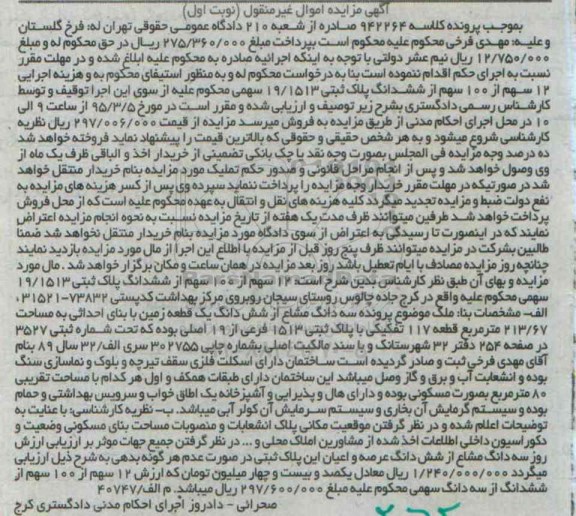 آگهی مزایده اموال غیرمنقول (نوبت اول)
بموجب پرونده کلاسه ۹۴۲۲۶۴ صادره از شعبه ۲۱۰ دادگاه عمومی حقوقی تهران له: فرخ گلستان
و علیه: مهدی فرخی محکوم علیه محکوم است بپرداخت مبلغ ۲۷۵/۳۶۰/۰۰۰ ریال در حق محکوم له و مبلغ
۱۲/۷۵۰/۰۰۰ ریال نیم عشر دولتی با توجه به اینکه اجرائیه صادره به محکوم علیه ابلاغ شده و در مهلت مقرر
نسبت به اجرای حکم اقدام ننموده است بنا به درخواست محکوم له و به منظور استیفای محکوم به و هزینه اجرایی
۱۲ سهم از ۱۰۰ سهم از ششدانگ پلاک ثبتی ۱۹/۱۵۱۳ سهمی محکوم علیه از سوی این اجرا توقیف و توسط
کارشناس رسمی دادگستری بشرح زیر توصیف و ارزیابی شده و مقرر است در مورخ ۹۵/۳/۵ از ساعت ۹ الی
۱۰ در محل اجرای احکام مدنی از طریق مزایده به فروش میرسد مزایده از قیمت ۲۹۷/۰۰۶/۰۰۰ ریال نظریه
کارشناسی شروع میشود و به هر شخص حقیقی و حقوقی که بالاترین قیمت را پیشنهاد نماید فروخته خواهد شد
ده درصد وجه مزایده فی المجلس بصورت وجه نقد یا چک بانکی تضمینی از خریدار اخذ و الباقی ظرف یک ماه از
وی وصول خواهد شد و پس از انجام مراحل قانونی و صدور حکم تملیک مورد مزایده بنام خریدار منتقل خواهد
شد در صورتیکه در مهلت مقرر خریدار وجه مزایده را پرداخت ننماید سپرده وی پس از کسر هزینه های مزایده به
نفع دولت ضبط و مزایده تجدید میگردد کلیه هزینه های نقل و انتقال به عهده محکوم علیه است که از محل فروش
پرداخت خواهد شد طرفین میتوانند ظرف مدت یک هفته از تاریخ مزایده نسبت به نحوه انجام مزایده اعتراض
نمایند که در اینصورت تا رسیدگی به اعتراض از سوی دادگاه مورد مزایده بنام خریدار منتقل نخواهد شد ضمنا
طالبین بشرکت در مزایده میتوانند ظرف پنج روز قبل از مزایده با اطلاع این اجرا از مال مورد مزایده بازدید نمایند
چنانچه روز مزایده مصادف با ایام تعطیل باشد روز بعد مزایده در همان ساعت و مکان برگزار خواهد شد. مال مورد
مزایده و بهای آن طبق نظر کارشناس بدین شرح است: ۱۲ سهم از ۱۰۰ سهم از ششدانگ پلاک ثبتی ۱۹/۱۵۱۳
سهمی محکوم علیه واقع در کرج جاده چالوس روستای سیجان روبروی مرکز بهداشت کدپستی ۷۳۸۳۲-۳۱۵۲۱
الف- مشخصات بنا: ملک موضوع پرونده سه دانگ مشاع از شش دانگ یک قطعه زمین با بنای احداثی به مساحت
۲۱۳/۶۷ مترمربع قطعه ۱۱۷ تفکیکی با پلاک ثبتی ۱۵۱۳ فرعی از ۱۹ اصلی بوده که تحت شماره ثبتی ۳۵۲۷
در صفحه ۲۵۴ دفتر ۳۲ شهرستانک و با سند مالکیت اصلی بشماره چاپی ۳۰۲۷۵۵ سری الف/۳۲ سال ۸۹ بنام
آقای مهدی فرخی ثبت و صادر گردیده است ساختمان دارای اسکلت فلزی سقف تیرچه و بلوک و نماسازی سنگ
بوده و انشعابت آب و برق و گاز وصل میباشد این ساختمان دارای طبقات همکف و اول هر کدام با مساحت تقریبی
۸۰ مترمربع بصورت مسکونی بوده و دارای هال و پذیرایی و آشپزخانه یک اطاق خواب و سرویس بهداشتی و حمام
بوده و سیستم گرمایش آن بخاری و سیستم سرمایش آن کولر آبی میباشد. ب- نظریه کارشناسی: با عنایت به
توضیحات اعلام شده و در نظر گرفتن موقعیت مکانی پلاک انشعابات و منصوبات مساحت بنای مسکونی وضعیت و
دکوراسیون داخلی اطلاعات اخذ شده از مشاورین املاک محلی و ... در نظر گرفتن جمیع جهات موثر بر ارزیابی ارزش
روز سه دانگ مشاع از شش دانگ عرصه و اعیان این پلاک ثبتی در صورت عدم هر گونه بدهی به شرح ذیل ارزیابی
میگردد ۱/۲۴۰/۰۰۰/۰۰۰ ریال معادل یکصد و بیست و چهار میلیون تومان که ارزش ۱۲ سهم از ۱۰۰ سهم از
ششدانگ از سه دانگ سهمی محکوم علیه مبلغ ۲۹۷/۶۰۰/۰۰۰ ریال میباشد. م الف/۴۰۷۴۷
صحرائی - دادروز اجرای احکام مدنی دادگستری کرج